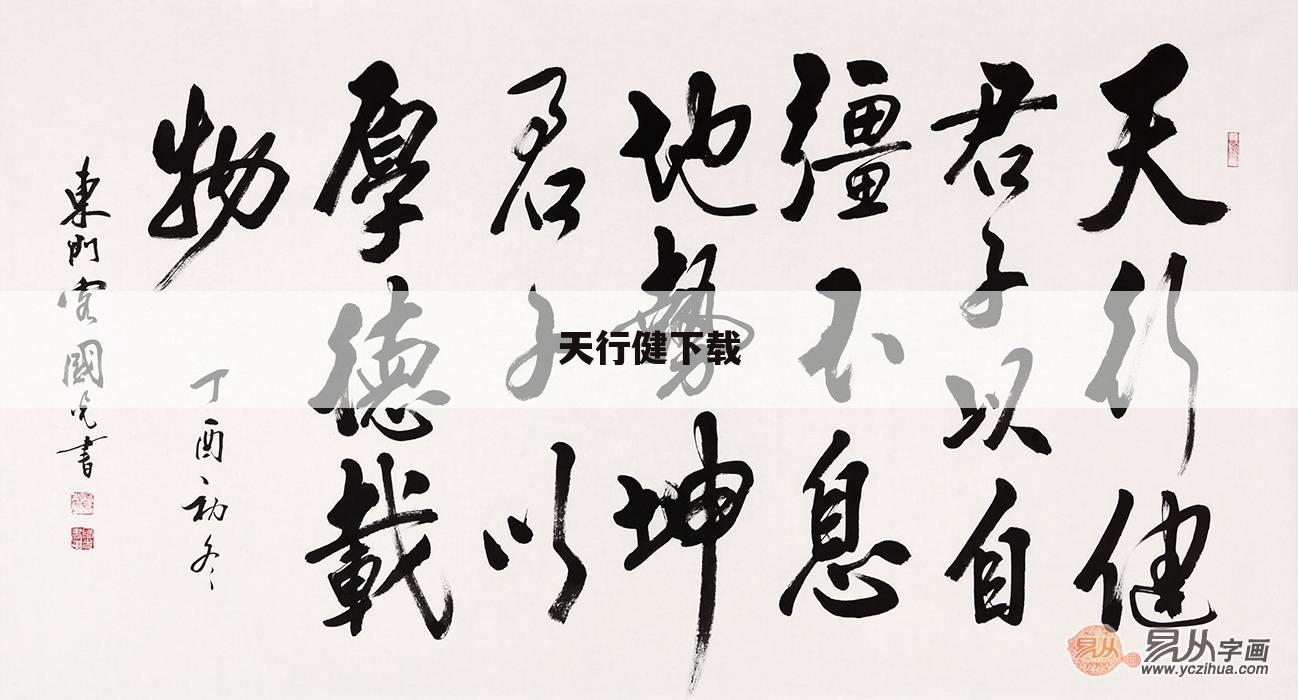 天行健
君子以自
彊不息
地勢坤
君子以
厚德載
物
丁酉初冬
東門客國光書
天行健下载
易从字画
www.yczihua.com